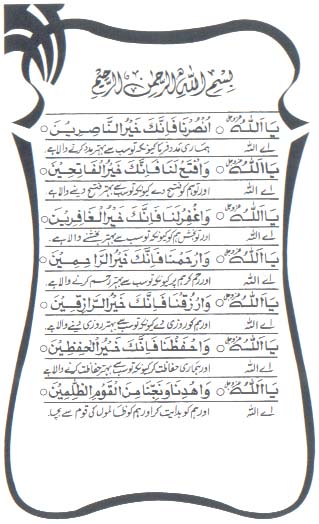 بِسْمِ اللهِ الرَّحْمٰنِ الرَّحِيْمِ
يَا اَللهُ ○ اُنْصُرْنَا فَاِنَّكَ خَيْرُ النَّاصِرِيْنَ ○
اے اللہ ہماری مدد فرما کیونکہ تو سب سے بہتر مدد کرنے والا ہے.
يَا اَللهُ ○ وَافْتَحْ لَنَا فَاِنَّكَ خَيْرُ الْفَاتِحِيْنَ ○
اے اللہ اور تو ہم کو فتح دے کیونکہ تو سب سے بہتر فتح دینے والا ہے.
يَا اَللهُ ○ وَاغْفِرْلَنَا فَاِنَّكَ خَيْرُ الْغَافِرِيْنَ ○
اے اللہ اور تو بخش ہم کو کیونکہ تو سب سے بہتر بخشنے والا ہے.
يَا اَللهُ ○ وَارْحَمْنَا فَاِنَّكَ خَيْرُ الرَّاحِمِيْنَ ○
اے اللہ اور رحم کر ہم پر کیونکہ تو سب سے بہتر رحم کرنے والا ہے.
يَا اَللهُ ○ وَارْزُقْنَا فَاِنَّكَ خَيْرُ الرَّازِقِيْنَ ○
اے اللہ اور ہم کو روزی دے کیونکہ تو سب سے بہتر روزی دینے والا ہے.
يَا اَللهُ ○ وَاحْفَظْنَا فَاِنَّكَ خَيْرُ الْحٰفِظِيْنَ ○
اے اللہ اور ہماری حفاظت کر کیونکہ تو سب سے بہتر حفاظت کرنے والا ہے
يَا اَللهُ ○ وَاهْدِنَا وَنَجِّنَا مِنَ الْقَوْمِ الظّٰلِمِيْنَ ○
اے اللہ اور ہم کو ہدایت کر اور ہم کو ظالموں کی قوم سے بچا.